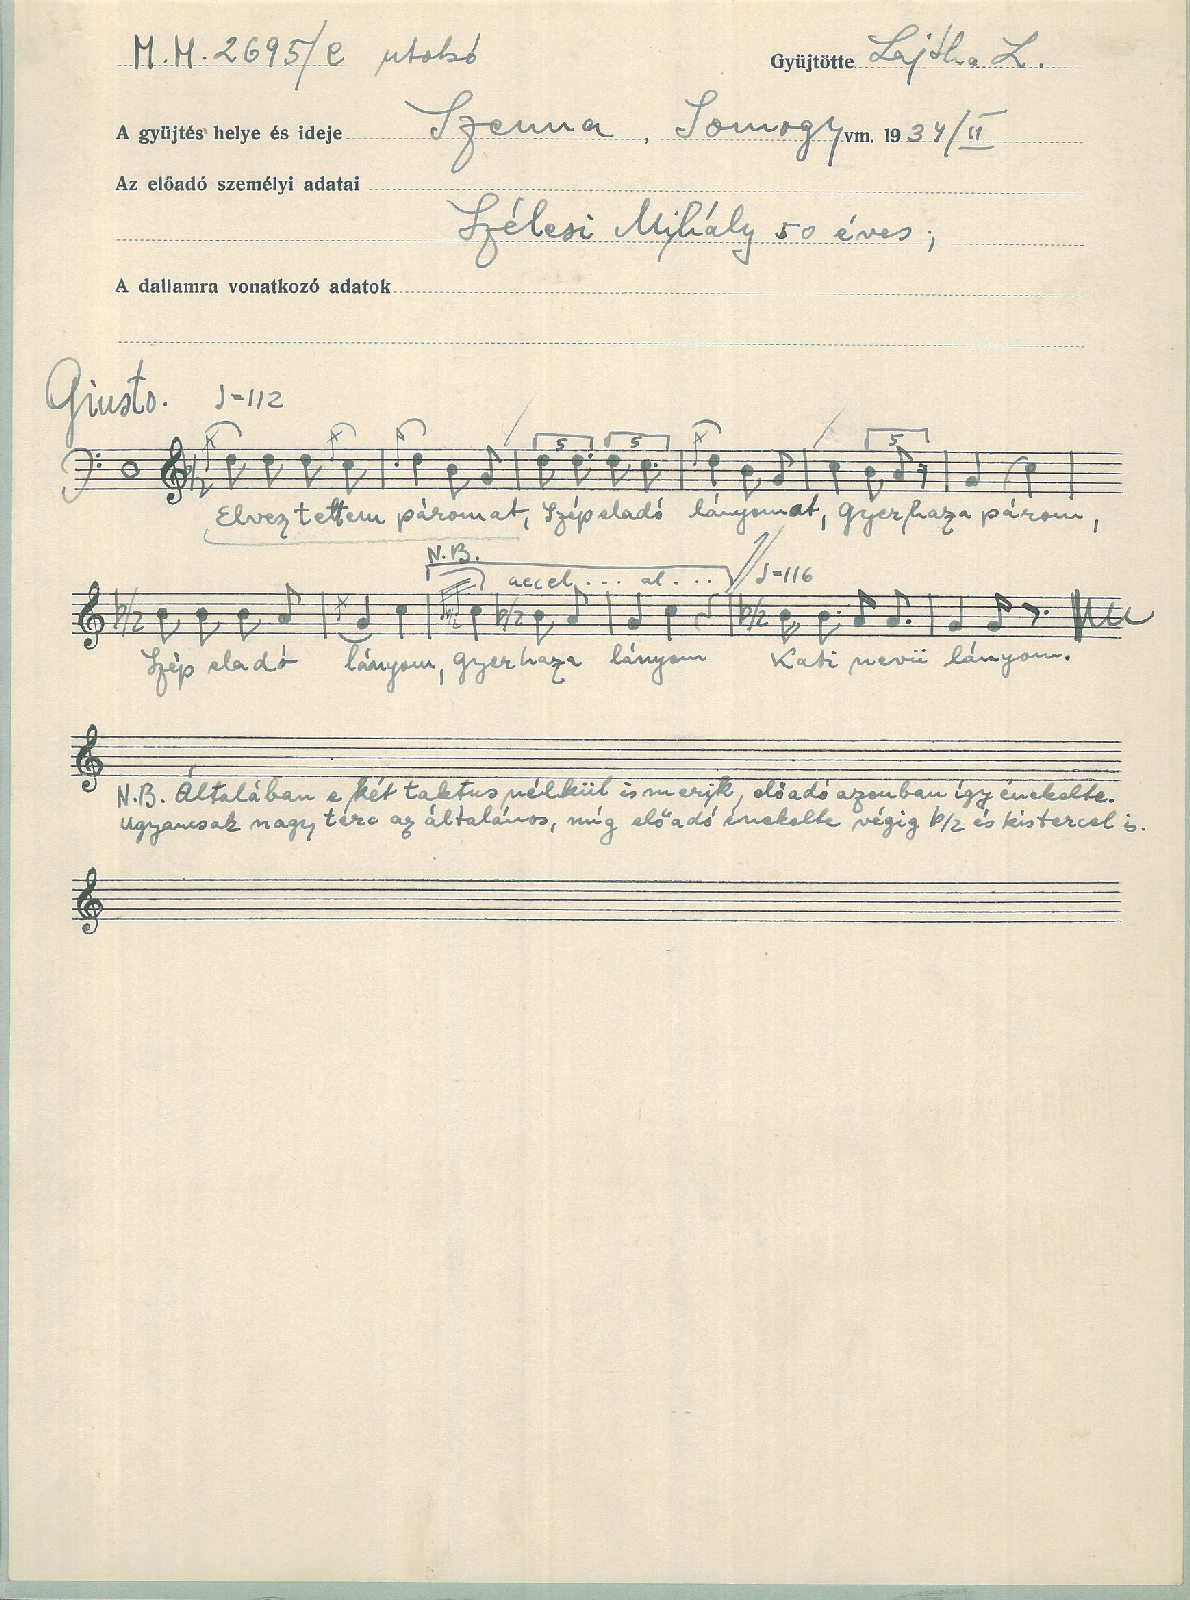 M.H. 2695/e utolsó
Gyüjtötte Lajtha L.
A gyüjtés helye és ideje Szenna, Somogy vm. 1934/II
Az előadó személyi adatai
Szélesi Mihály 50 éves;
A dallamra vonatkozó adatok
Giusto. ♩=112
5 5 5
Elveztettem páromat, Szép eladó lányomat, gyer haza párom,
N.B. accel... al... ♩=116
Szép eladó lányom, gyer haza lányom Kati nevü lányom.
N.B. Általában e két taktus nélkül ismerik, előadó azonban így énekelte.
Ugyancsak nagy terc az általános, míg előadó énekelte végig b/2 és kistercel is.